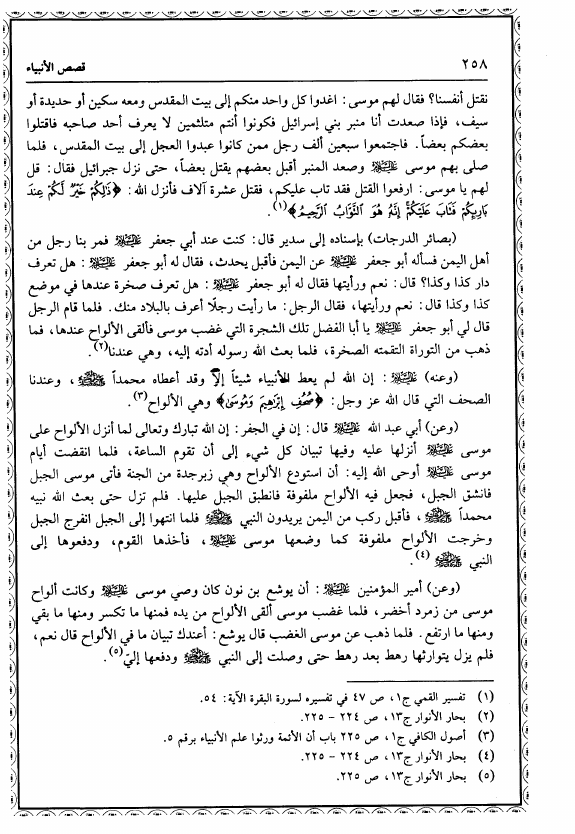 ٢٥٨
قصص الأنبياء
نقتل أنفسنا؟ فقال لهم موسى: اغدوا كل واحد منكم إلى بيت المقدس ومعه سكين أو حديدة أو
سيف، فإذا صعدت أنا منبر بني إسرائيل فكونوا أنتم متلثمين لا يعرف أحد صاحبه فاقتلوا
بعضكم بعضاً. فاجتمعوا سبعين ألف رجل ممن كانوا عبدوا العجل إلى بيت المقدس، فلما
صلى بهم موسى عليه السلام وصعد المنبر أقبل بعضهم يقتل بعضاً، حتى نزل جبرائيل فقال: قل
لهم يا موسى: ارفعوا القتل فقد تاب عليكم، فقتل عشرة آلاف فأنزل الله: ﴿ذَالِكُمْ خَيْرٌ لَّكُمْ عِندَ
بَارِئِكُمْ فَتَابَ عَلَيْكُمْ إِنَّهُ هُوَ التَّوَّابُ الرَّحِيمُ﴾(١).
(بصائر الدرجات) بإسناده إلى سدير قال: كنت عند أبي جعفر عليه السلام فمر بنا رجل من
أهل اليمن فسأله أبو جعفر عليه السلام عن اليمن فأقبل يحدث، فقال له أبو جعفر عليه السلام: هل تعرف
دار كذا وكذا؟ قال: نعم ورأيتها فقال له أبو جعفر عليه السلام: هل تعرف صخرة عندها في موضع
كذا وكذا قال: نعم ورأيتها، فقال الرجل: ما رأيت رجلاً أعرف بالبلاد منك. فلما قام الرجل
قال لي أبو جعفر عليه السلام يا أبا الفضل تلك الشجرة التي غضب موسى فألقى الألواح عندها، فما
ذهب من التوراة التقمته الصخرة، فلما بعث الله رسوله أدته إليه، وهي عندنا(٢).
(وعنه) عليه السلام: إن الله لم يعط الأنبياء شيئاً إلا وقد أعطاه محمداً صلى الله عليه وآله وسلم، وعندنا
الصحف التي قال الله عز وجل: ﴿صُحُفِ إِبْرَاهِيمَ وَمُوسَى﴾ وهي الألواح(٣).
(وعن) أبي عبد الله عليه السلام قال: إن في الجفر: إن الله تبارك وتعالى لما أنزل الألواح على
موسى عليه السلام أنزلها عليه وفيها تبيان كل شيء إلى أن تقوم الساعة، فلما انقضت أيام
موسى عليه السلام أوحى الله إليه: أن استودع الألواح وهي زبرجدة من الجنة فأتى موسى الجبل
فانشق الجبل، فجعل فيه الألواح ملفوفة فانطبق الجبل عليها. فلم تزل حتى بعث الله نبيه
محمداً صلى الله عليه وآله وسلم، فأقبل ركب من اليمن يريدون النبي صلى الله عليه وآله وسلم فلما انتهوا إلى الجبل انفرج الجبل
وخرجت الألواح ملفوفة كما وضعها موسى عليه السلام، فأخذها القوم، ودفعوها إلى
النبي صلى الله عليه وآله وسلم(٤).
(وعن) أمير المؤمنين عليه السلام: أن يوشع بن نون كان وصي موسى عليه السلام وكانت ألواح
موسى من زمرد أخضر، فلما غضب موسى ألقى الألواح من يده فمنها ما تكسر ومنها ما بقي
ومنها ما ارتفع. فلما ذهب عن موسى الغضب قال يوشع: أعندك تبيان ما في الألواح قال نعم،
فلم يزل يتوارثها رهط بعد رهط حتى وصلت إلى النبي صلى الله عليه وآله وسلم ودفعها إليّ(٥).
(١) تفسير القمي ج١، ص ٤٧ في تفسيره لسورة البقرة الآية: ٥٤.
(٢) بحار الأنوار ج١٣، ص ٢٢٤ - ٢٢٥.
(٣) أصول الكافي ج١، ص ٢٢٥ باب أن الأئمة ورثوا علم الأنبياء برقم ٥.
(٤) بحار الأنوار ج١٣، ص ٢٢٤ - ٢٢٥.
(٥) بحار الأنوار ج١٣، ص ٢٢٥.